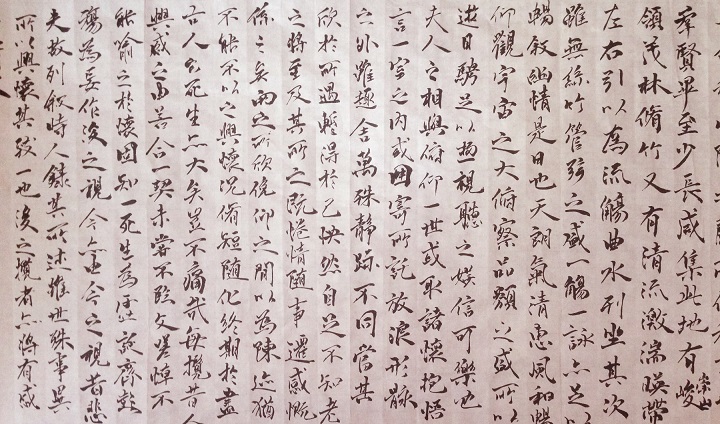 羣賢畢至少長咸集此地有崇山峻
領茂林脩竹又有清流激湍暎帶
左右引以為流觴曲水列坐其次
雖無絲竹管弦之盛一觴一詠亦足以
暢敘幽情是日也天朗氣清惠風和暢
仰觀宇宙之大俯察品類之盛所以
遊目騁足以極視聽之娛信可樂也
夫人之相與俯仰一世或取諸懷抱悟
言一室之內或因寄所託放浪形骸
之外雖趣舍萬殊靜躁不同當其
欣於所遇暫得於己快然自足不知老
之將至及其所之既惓情隨事遷感慨
係之矣向之所欣俛仰之間以為陳迹猶
不能不以之興懷況脩短隨化終期於盡
古人云死生亦大矣豈不痛哉每攬昔人
興感之由若合一契未嘗不臨文嗟悼不
能喻之於懷固知一死生為虛誕齊彭
殤為妄作後之視今亦由今之視昔悲
夫故列敘時人錄其所述雖世殊事異
所以興懷其致一也後之攬者亦將有感